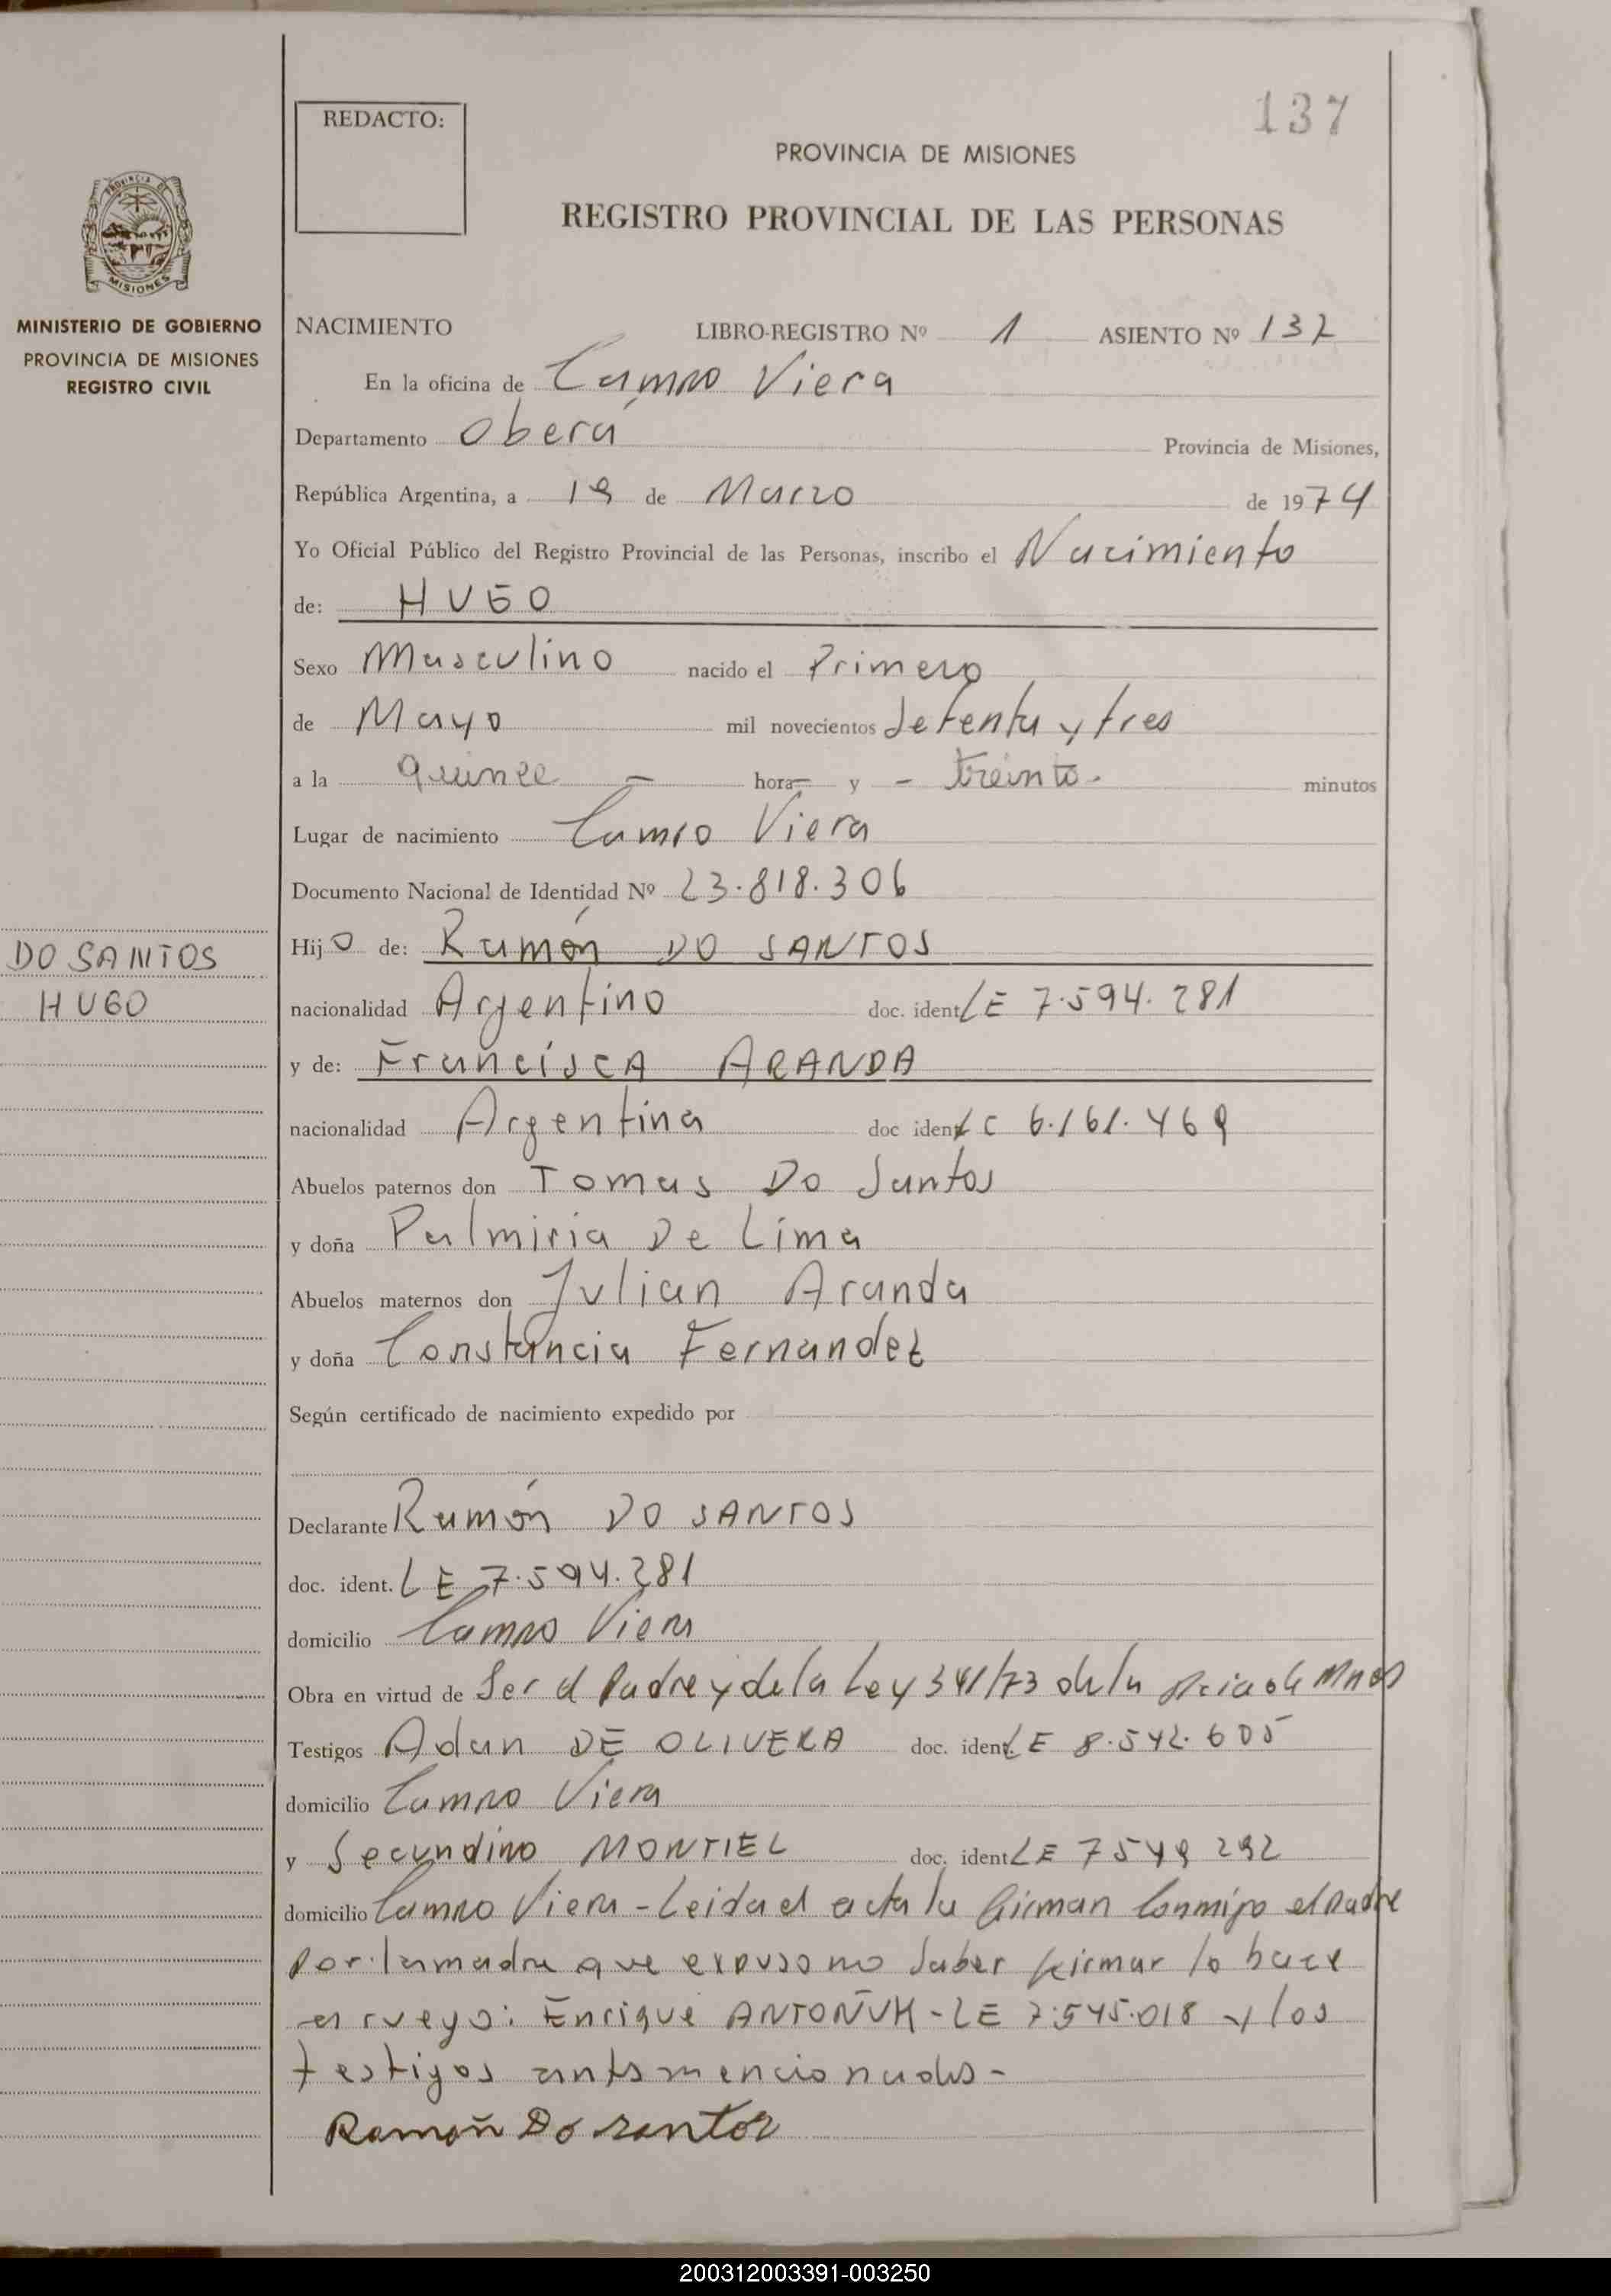 137
REDACTO:
PROVINCIA DE MISIONES
REGISTRO PROVINCIAL DE LAS PERSONAS
PROVINCIA DE
MISIONES
MINISTERIO DE GOBIERNO
PROVINCIA DE MISIONES
REGISTRO CIVIL
NACIMIENTO LIBRO-REGISTRO Nº 1 ASIENTO Nº 137
En la oficina de Campo Viera
Departamento Oberá Provincia de Misiones,
República Argentina, a 19 de Marzo de 1974
Yo Oficial Público del Registro Provincial de las Personas, inscribo el Nacimiento
de: HUGO
Sexo Masculino nacido el Primero
de Mayo mil novecientos setenta y tres
a la quince - hora y - treinta - minutos
Lugar de nacimiento Campo Viera
Documento Nacional de Identidad Nº 23.818.306
DO SANTOS
HUGO
Hijo de: Ramón DO SANTOS
nacionalidad Argentino doc. ident LE 7.594.281
y de: Francisca ARANDA
nacionalidad Argentina doc ident LC 6.161.469
Abuelos paternos don Tomas Do Santos
y doña Palmiria De Lima
Abuelos maternos don Julian Aranda
y doña Constancia Fernandez
Según certificado de nacimiento expedido por
Declarante Ramón DO SANTOS
doc. ident. LE 7.594.281
domicilio Campo Viera
Obra en virtud de Ser el Padre y de la Ley 341/73 de la Pcia de Mnes
Testigos Adan DE OLIVERA doc. ident. LE 8.542.605
domicilio Campo Viera
y Secundino MONTIEL doc. ident LE 7549292
domicilio Campo Viera - Leida el acta la firman conmigo el Padre
Por la madre que expuso no saber firmar lo hace
a ruego: Enrique ANTOÑUK - LE 7.545.018 y los
testigos antsmencionados -
Ramoñ Do santos
200312003391-003250